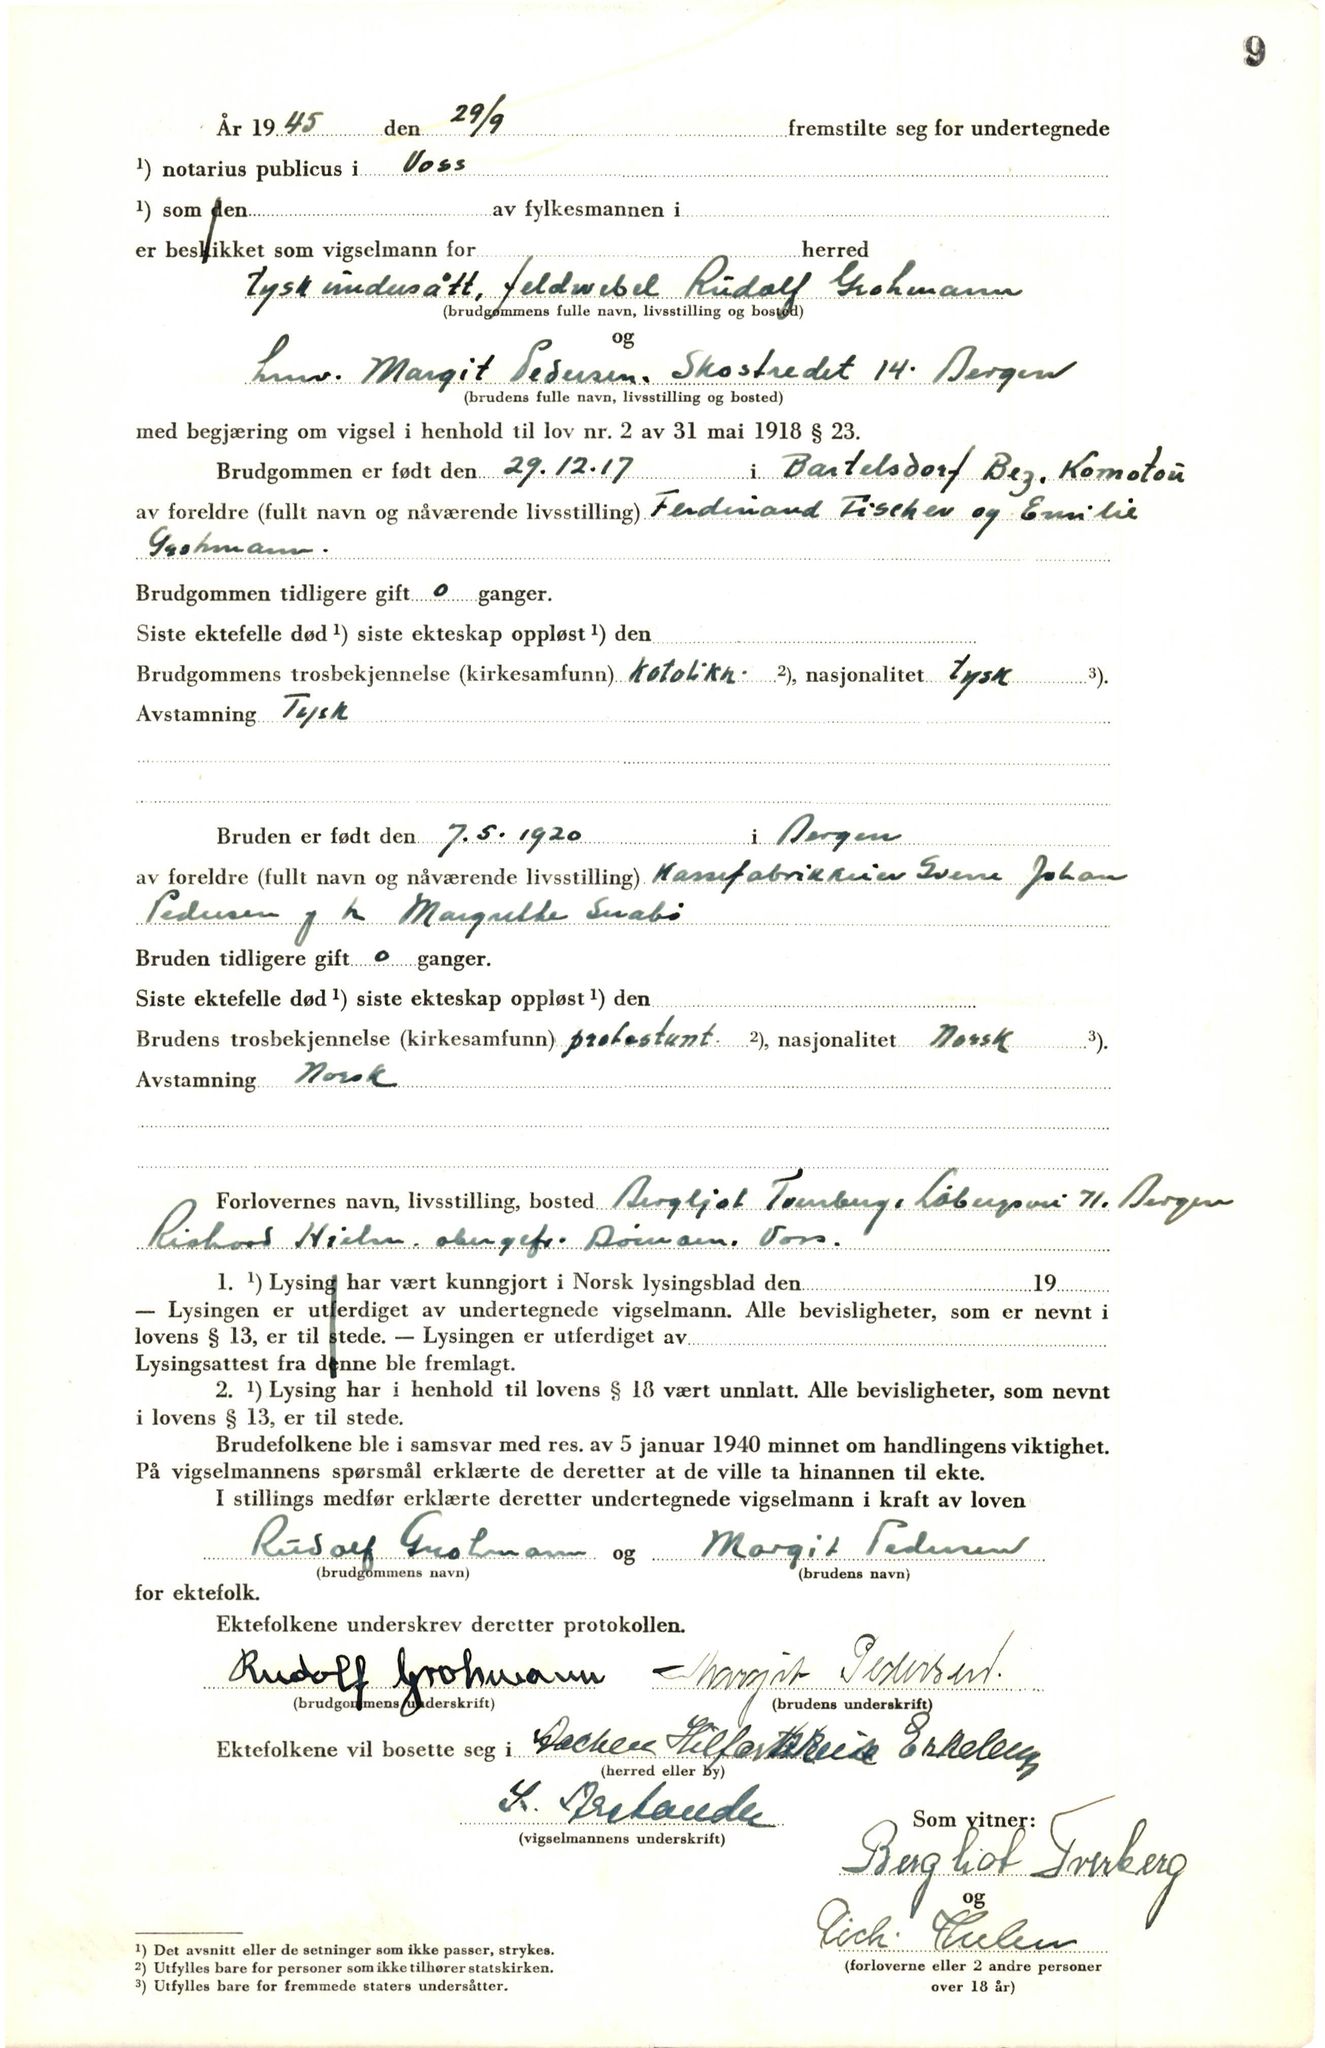 9
År 1945 den 29/9 fremstilte seg for undertegnede
1) notarius publicus i Voss
1) som den av fylkesmannen i
er beskikket som vigselmann for herred
tysk undersått, feldwebel Rudolf Grohmann
(brudgommens fulle navn, livsstilling og bosted)
og
hmv. Margit Pedersen. Skostredet 14. Bergen
(brudens fulle navn, livsstilling og bosted)
med begjæring om vigsel i henhold til lov nr. 2 av 31 mai 1918 § 23.
Brudgommen er født den 29.12.17 i Bartelsdorf Bez. Komotau
av foreldre (fullt navn og nåværende livsstilling) Ferdinand Fischer og Emilie
Grohmann.
Brudgommen tidligere gift 0 ganger.
Siste ektefelle død 1) siste ekteskap oppløst 1) den
Brudgommens trosbekjennelse (kirkesamfunn) katolikk. 2), nasjonalitet tysk 3).
Avstamning Tysk
Bruden er født den 7.5.1920 i Bergen
av foreldre (fullt navn og nåværende livsstilling) Kassefabrikkeier Sverre Johan
Pedersen og h Margrethe
Bruden tidligere gift 0 ganger.
Siste ektefelle død 1) siste ekteskap oppløst 1) den
Brudens trosbekjennelse (kirkesamfunn) protestant. 2), nasjonalitet Norsk 3).
Avstamning Norsk
Forlovernes navn, livsstilling, bosted Bergljot Tverberg, 71. Bergen
obergefr. Bömoen. Voss.
1. 1) Lysing har vært kunngjort i Norsk lysingsblad den 19
— Lysingen er utferdiget av undertegnede vigselmann. Alle bevisligheter, som er nevnt i
lovens § 13, er til stede. — Lysingen er utferdiget av
Lysingsattest fra denne ble fremlagt.
2. 1) Lysing har i henhold til lovens § 18 vært unnlatt. Alle bevisligheter, som nevnt
i lovens § 13, er til stede.
Brudefolkene ble i samsvar med res. av 5 januar 1940 minnet om handlingens viktighet.
På vigselmannens spørsmål erklærte de deretter at de ville ta hinannen til ekte.
I stillings medfør erklærte deretter undertegnede vigselmann i kraft av loven
Rudolf Grohmann og Margit Pedersen
(brudgommens navn) (brudens navn)
for ektefolk.
Ektefolkene underskrev deretter protokollen.
Rudolf Grohmann Margit Pedersen.
(brudgommens underskrift) (brudens underskrift)
Ektefolkene vil bosette seg i Erkelenz
(herred eller by)
(vigselmannens underskrift)
Som vitner:
Bergliot Tverberg
og
Rich.
(forloverne eller 2 andre personer
over 18 år)
1) Det avsnitt eller de setninger som ikke passer, strykes.
2) Utfylles bare for personer som ikke tilhører statskirken.
3) Utfylles bare for fremmede staters undersåtter.